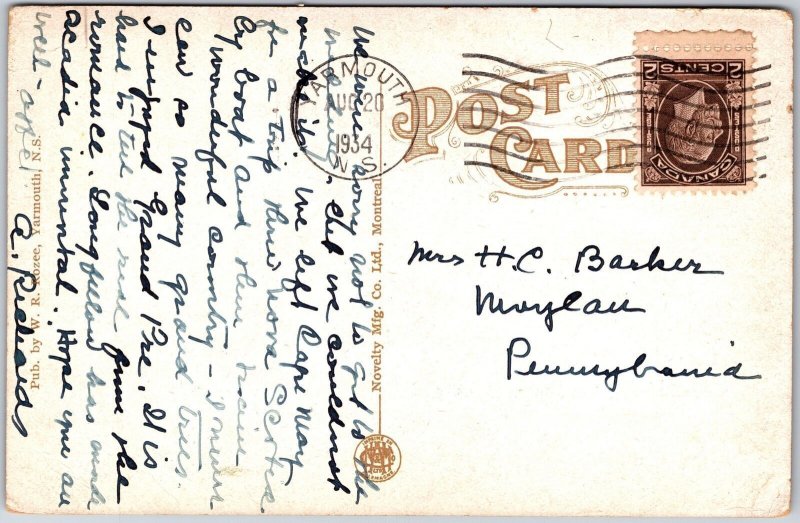 POST
CARD
YARMOUTH
AUG 20
1934
N.S.
2 CENTS 2
CANADA
We were sorry not to get to the
, but we couldn't
make it. We left Cape May
for a trip thru Nova Scotia
by boat and then train
Wonderful country – I never
saw so many grand trees.
I enjoyed Grand Pré. It is
hard to tell the real from the
romance. Longfellow has made
Acadia immortal. Hope you are
well –
A. Richards
Mrs H. C. Barker
Moylan
Pennsylvania
Novelty Mfg. Co. Ltd., Montreal
Pub. by W. R. Rozee, Yarmouth, N.S.